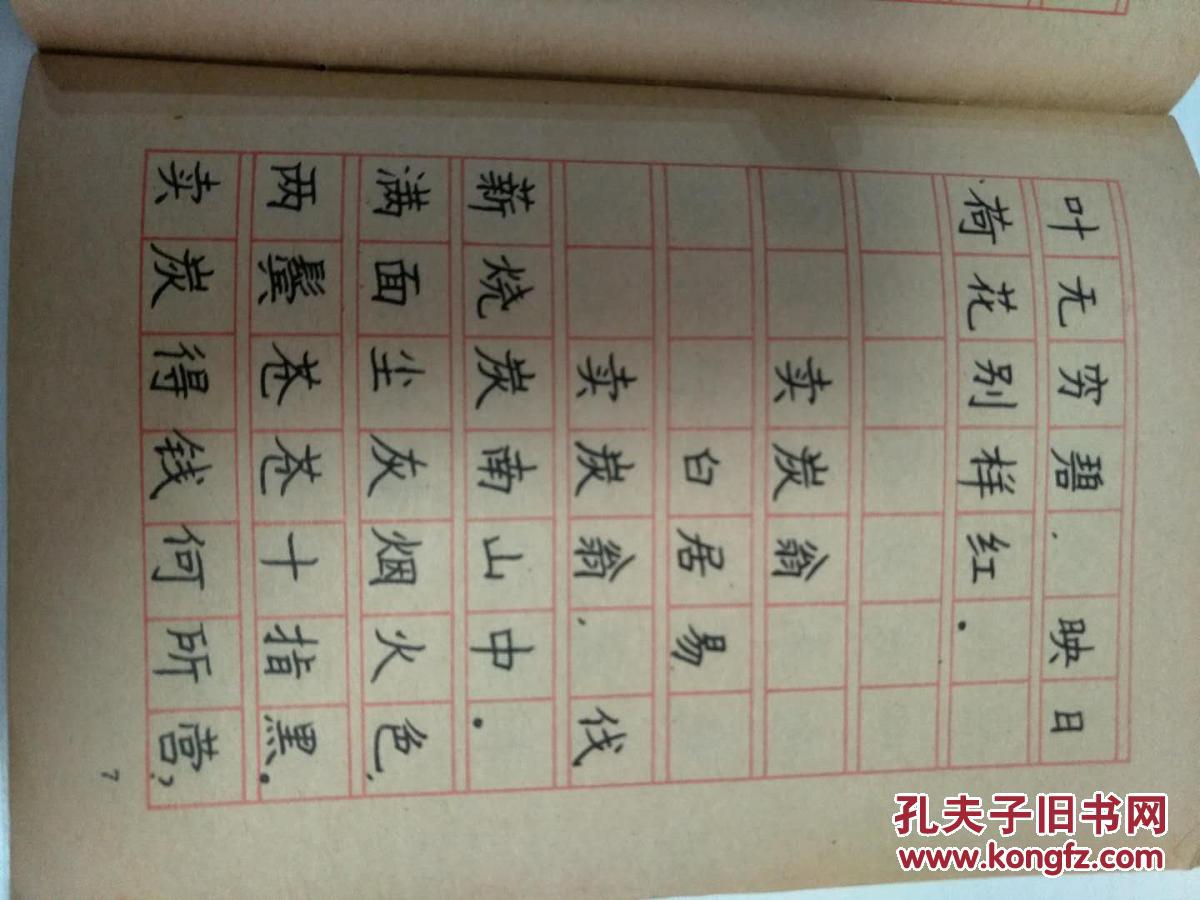 叶无穷碧，映日
荷花别样红。
卖炭翁
白居易
卖炭翁，伐
薪烧炭南山中。
满面尘灰烟火色，
两鬓苍苍十指黑。
卖炭得钱何所营？
7
孔夫子旧书网
www.kongfz.com